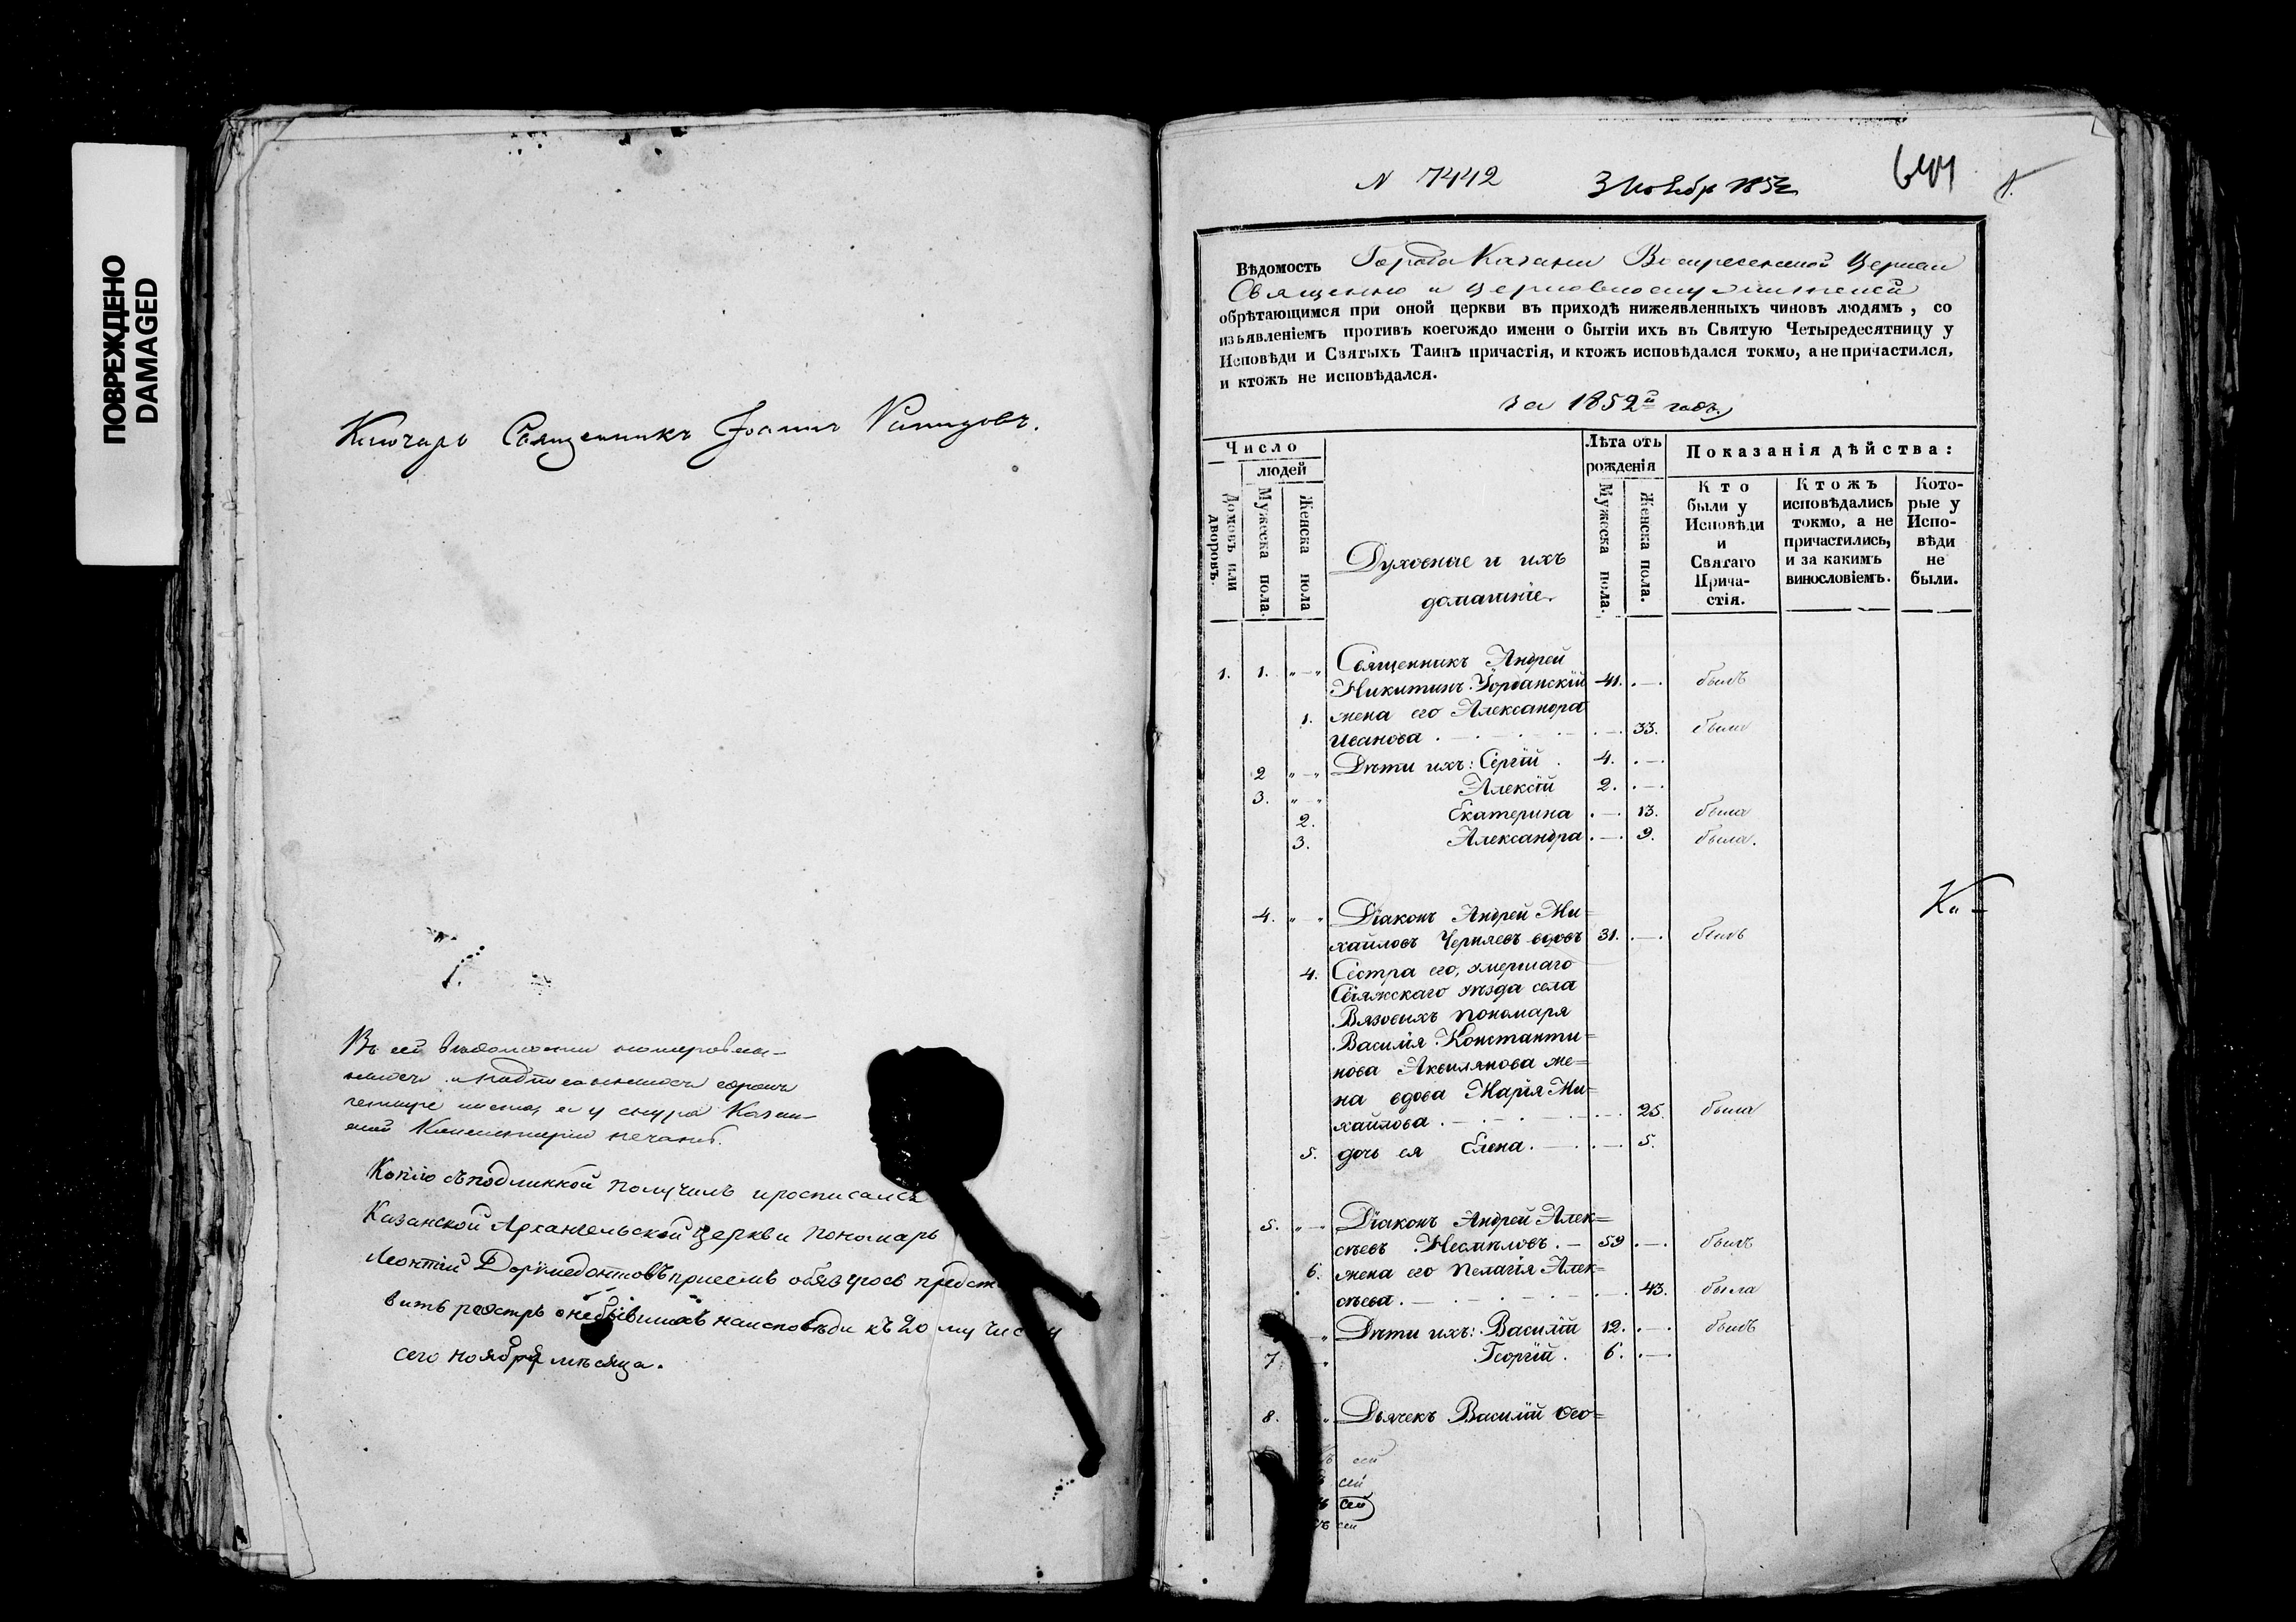 ПОВРЕЖДЕНО
DAMAGED
Ключарь Священникъ Іоаннъ
Въ сей Ведомости нумерован-
ныхъ сорокъ
четыре листа, и у снура Казан-
ской Консисторіи печать.
Копію съ подлинной получилъ и росписался
Казанской Архангельской Церкви Пономарь
Леонтій Доримедонтовъ при семъ обязуюсь предста
вить реэстръ о небывшихъ на исповѣди къ 20 му числу
сего ноября мѣсяца.
N 7442 3 Ноября 1852 644 1.
Вѣдомость Города Казани Воскресенской Церкви
Священно и церковнослужителей
обрѣтающимся при оной церкви въ приходѣ нижеявленныхъ чиновъ людямъ, со
изъявленіемъ противъ коегождо имени о бытіи ихъ въ Святую Четыредесятницу у
Исповѣди и Святыхъ Таинъ причастія, и ктожъ исповѣдался токмо, а не причастился,
и ктожъ не исповѣдался.
за 1852й годъ
Число
людей
Домовъ или дворовъ.
Мужеска пола.
Женска пола
Духовные и ихъ
домашніе.
Лѣта отъ
рожденія
Мужеска пола.
Женска пола.
Показанія дѣйства:
Кто
были у
Исповѣди
и
Святаго
Прича-
стія.
Ктожъ
исповѣдались
токмо, а не
причастились,
и за какимъ
винословіемъ.
Кото-
рые у
Испо-
вѣди
не
были.
1. 1. Священникъ Андрей
Никитинъ Іорданскій 41. былъ
1. жена его Александра
Иванова 33. была
2 Дѣти ихъ: Сергій 4.
3. Алексій 2.
2. Екатерина 13. была
3. Александра 9. была.
Ка-
4. Діаконъ Андрей Ми=
хайловъ Черняевъ вдовъ 31. былъ
4. Сестра его, умершаго
Свіяжскаго уѣзда села
Вязовыхъ пономаря
Василія Константи=
нова Аквилянова же=
на вдова Марія Ми=
хайлова 25. была
5. дочь ея Елена 5.
5. Діаконъ Андрей Алек=
сѣевъ Несмѣловъ. 59 былъ
6. жена его Пелагія Алек=
сѣева. 43. была
Дѣти ихъ: Василій 12. былъ
7. Георгій. 6.
8. Дьячекъ Василій Ѳео=
сей
сей
сей
сей